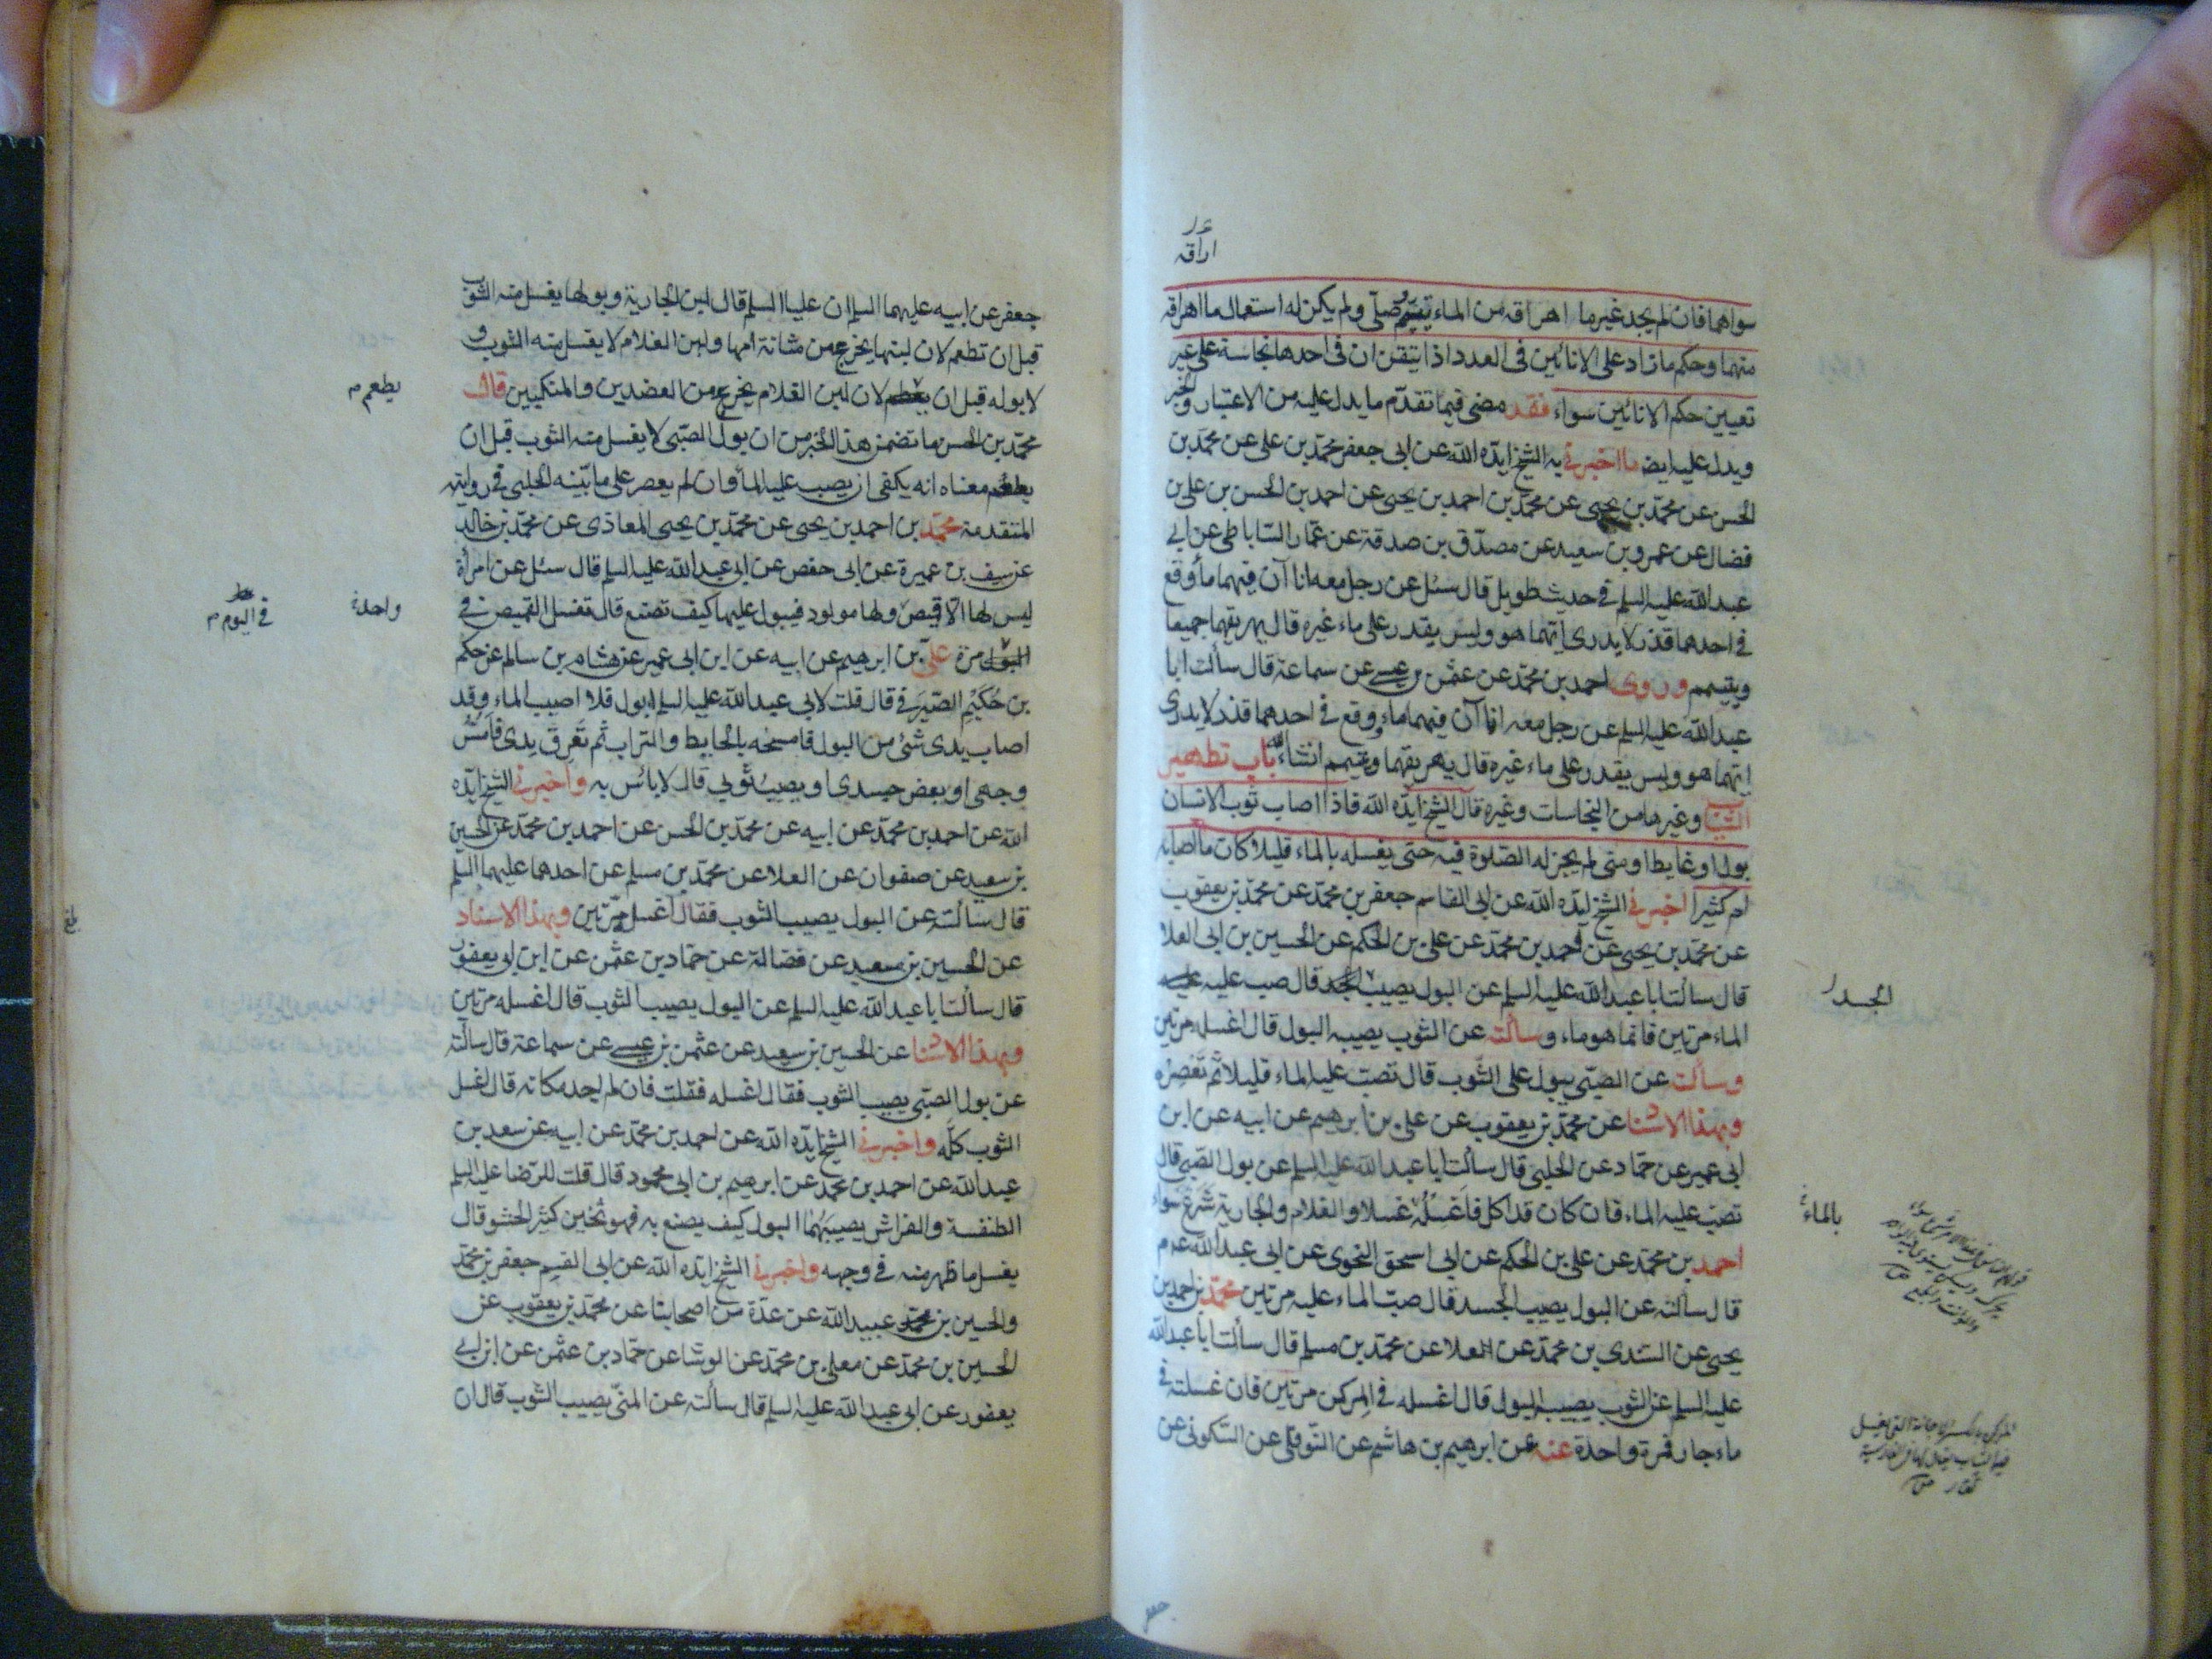 اراقه
سواهما فان لم يجد غير ما اهراقه من الماء تيمم وصلى ولم يكن له استعمال ما اهراقه
منهما وحكم ما زاد على الانائين فى العدد اذا تيقن ان فى احدها نجاسة على غير
تعيين حكم الانائين سواء فقد مضى فيما تقدم ما يدل عليه من الاعتبار والخبر
ويدل عليه ايض ما اخبرنى به الشيخ ايده الله عن ابى جعفر محمد بن على عن محمد بن
الحسن عن محمد بن يحيى عن محمد بن احمد بن يحيى عن احمد بن الحسن بن على بن
فضال عن عمرو بن سعيد عن مصدق بن صدقة عن عمار الساباطى عن ابى
عبد الله عليه السلم فى حديث طويل قال سئل عن رجل معه انا آن فيهما ماء وقع
فى احدهما قذر لا يدرى ايهما هو وليس يقدر على ماء غيره قال يهريقهما جميعا
ويتيمم وروى احمد بن محمد عن عثمن بن عيسى عن سماعة قال سألت ابا
عبد الله عليه السلم عن رجل معه انا آن فيهما ماء ووقع فى احدهما قذر لا يدرى
ايهما هو وليس يقدر على ماء غيره قال يهريقهما ويتيمم انشاء الله باب تطهير
الثياب وغيرها من النجاسات وغيره قال الشيخ ايده الله فاذا اصاب ثوب الانسان
بول او غايط او منى لم يجز له الصلوة فيه حتى يغسله بالماء قليلا كان ما اصابه
ام كثيرا اخبرنى الشيخ ايده الله عن ابى القاسم جعفر بن محمد عن محمد بن يعقوب
عن محمد بن يحيى عن احمد بن محمد عن على بن الحكم عن الحسين بن ابى العلا
قال سألت ابا عبد الله عليه السلم عن البول يصيب الجسد قال صب عليه
الجسد
الماء مرتين فانما هو ماء وسألته عن الثوب يصيبه البول قال اغسله مرتين
وسألته عن الصبى يبول على الثوب قال تصب عليه الماء قليلا ثم تعصره
وبهذا الاسناد عن محمد بن يعقوب عن على بن ابرهيم عن ابيه عن ابن
ابى عمير عن حماد عن الحلبى قال سألت ابا عبد الله عليه السلم عن بول الصبى قال
تصب عليه الماء فان كان قد اكل فاغسله غسلا والغلام والجارية شرع سواء
بالماء
احمد بن محمد عن على بن الحكم عن ابى اسحق النحوى عن ابى عبد الله عم
قال سألته عن البول يصيب الجسد قال صب الماء عليه مرتين محمد بن احمد بن
يحيى عن السندى بن محمد عن العلا عن محمد بن مسلم قال سألت ابا عبد الله
عليه السلم عن الثوب يصيبه البول قال اغسله فى المركن مرتين فان غسلته فى
ماء جار فمرة واحدة عنه عن ابرهيم بن هاشم عن النوفلى عن السكونى عن
جعفر
جعفر عن ابيه عليهما السلم ان عليا السلم قال لبن الجارية وبولها يغسل منه الثوب
قبل ان تطعم لان لبنها يخرج من مثانة امها ولبن الغلام لا يغسل منه الثوب و
لا بوله قبل ان يطعم لان لبن الغلام يخرج من العضدين والمنكبين قال
يطعم
محمد بن الحسن ما تضمن هذا الخبر من ان بول الصبى لا يغسل منه الثوب قبل ان
يطعم معناه انه يكفى ان يصب عليه الماء وان لم يعصر على ما بينه الحلبى فى روايته
المتقدمة محمد بن احمد بن يحيى عن محمد بن يحيى المعاذى عن محمد بن خالد
عن سيف بن عميرة عن ابى حفص عن ابى عبد الله عليه السلم قال سئل عن امرأة
ليس لها الا قميص ولها مولود فيبول عليها كيف تصنع قال تغسل القميص فى
واحد
فى اليوم
مرة على بن ابرهيم عن ابيه عن ابن ابى عمير عن هشام بن سالم عن حكم
بن حكيم الصيرفى قال قلت لابى عبد الله عليه السلم ابول فلا اصيب الماء وقد
اصاب يدى شئ من البول فامسحه بالحايط والتراب ثم تعرق يدى فامس
وجهى او بعض جسدى او يصيب ثوبى قال لا بأس به واخبرنى الشيخ ايده
الله عن احمد بن محمد عن ابيه عن محمد بن الحسن عن احمد بن محمد عن الحسين
بن سعيد عن صفوان عن العلا عن محمد بن مسلم عن احدهما عليهما السلم
قال سألته عن البول يصيب الثوب فقال اغسله مرتين وبهذا الاسناد
عن الحسين بن سعيد عن فضالة عن حماد بن عثمن عن ابن ابى يعفور
قال سألت ابا عبد الله عليه السلم عن البول يصيب الثوب قال اغسله مرتين
وبهذا الاسناد عن الحسين بن سعيد عن عثمن بن عيسى عن سماعة قال سألته
عن بول الصبى يصيب الثوب فقال اغسله فقلت فان لم اجد مكانه قال اغسل
الثوب كله واخبرنى الشيخ ايده الله عن احمد بن محمد عن ابيه عن سعد بن
عبد الله عن احمد بن محمد عن ابرهيم بن ابى محمود قال قلت للرضا عليه السلم
الطنفسة والفراش يصيبهما البول كيف يصنع به فهو ثخين كثير الحشو قال
يغسل ما ظهر منه فى وجهه واخبرنى الشيخ ايده الله عن ابى القسم جعفر بن محمد
والحسين بن عبيد الله عن عدة من اصحابنا عن محمد بن يعقوب عن
الحسين بن محمد عن معلى بن محمد عن الوشا عن حماد بن عثمن عن ابن ابى
يعفور عن ابى عبد الله عليه السلم قال سألته عن المنى يصيب الثوب قال ان